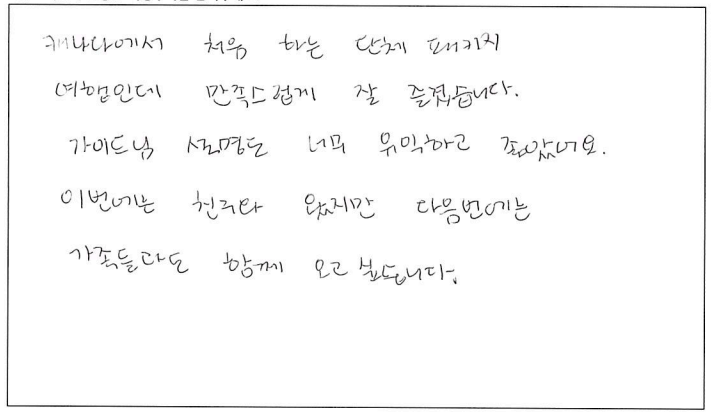 캐나다에서 처음 하는 단체 패키지
여행인데 만족스럽게 잘 즐겼습니다.
가이드님 설명도 너무 유익하고 좋았어요.
이번에는 친구와 왔지만 다음번에는
가족들과도 함께 오고 싶습니다.